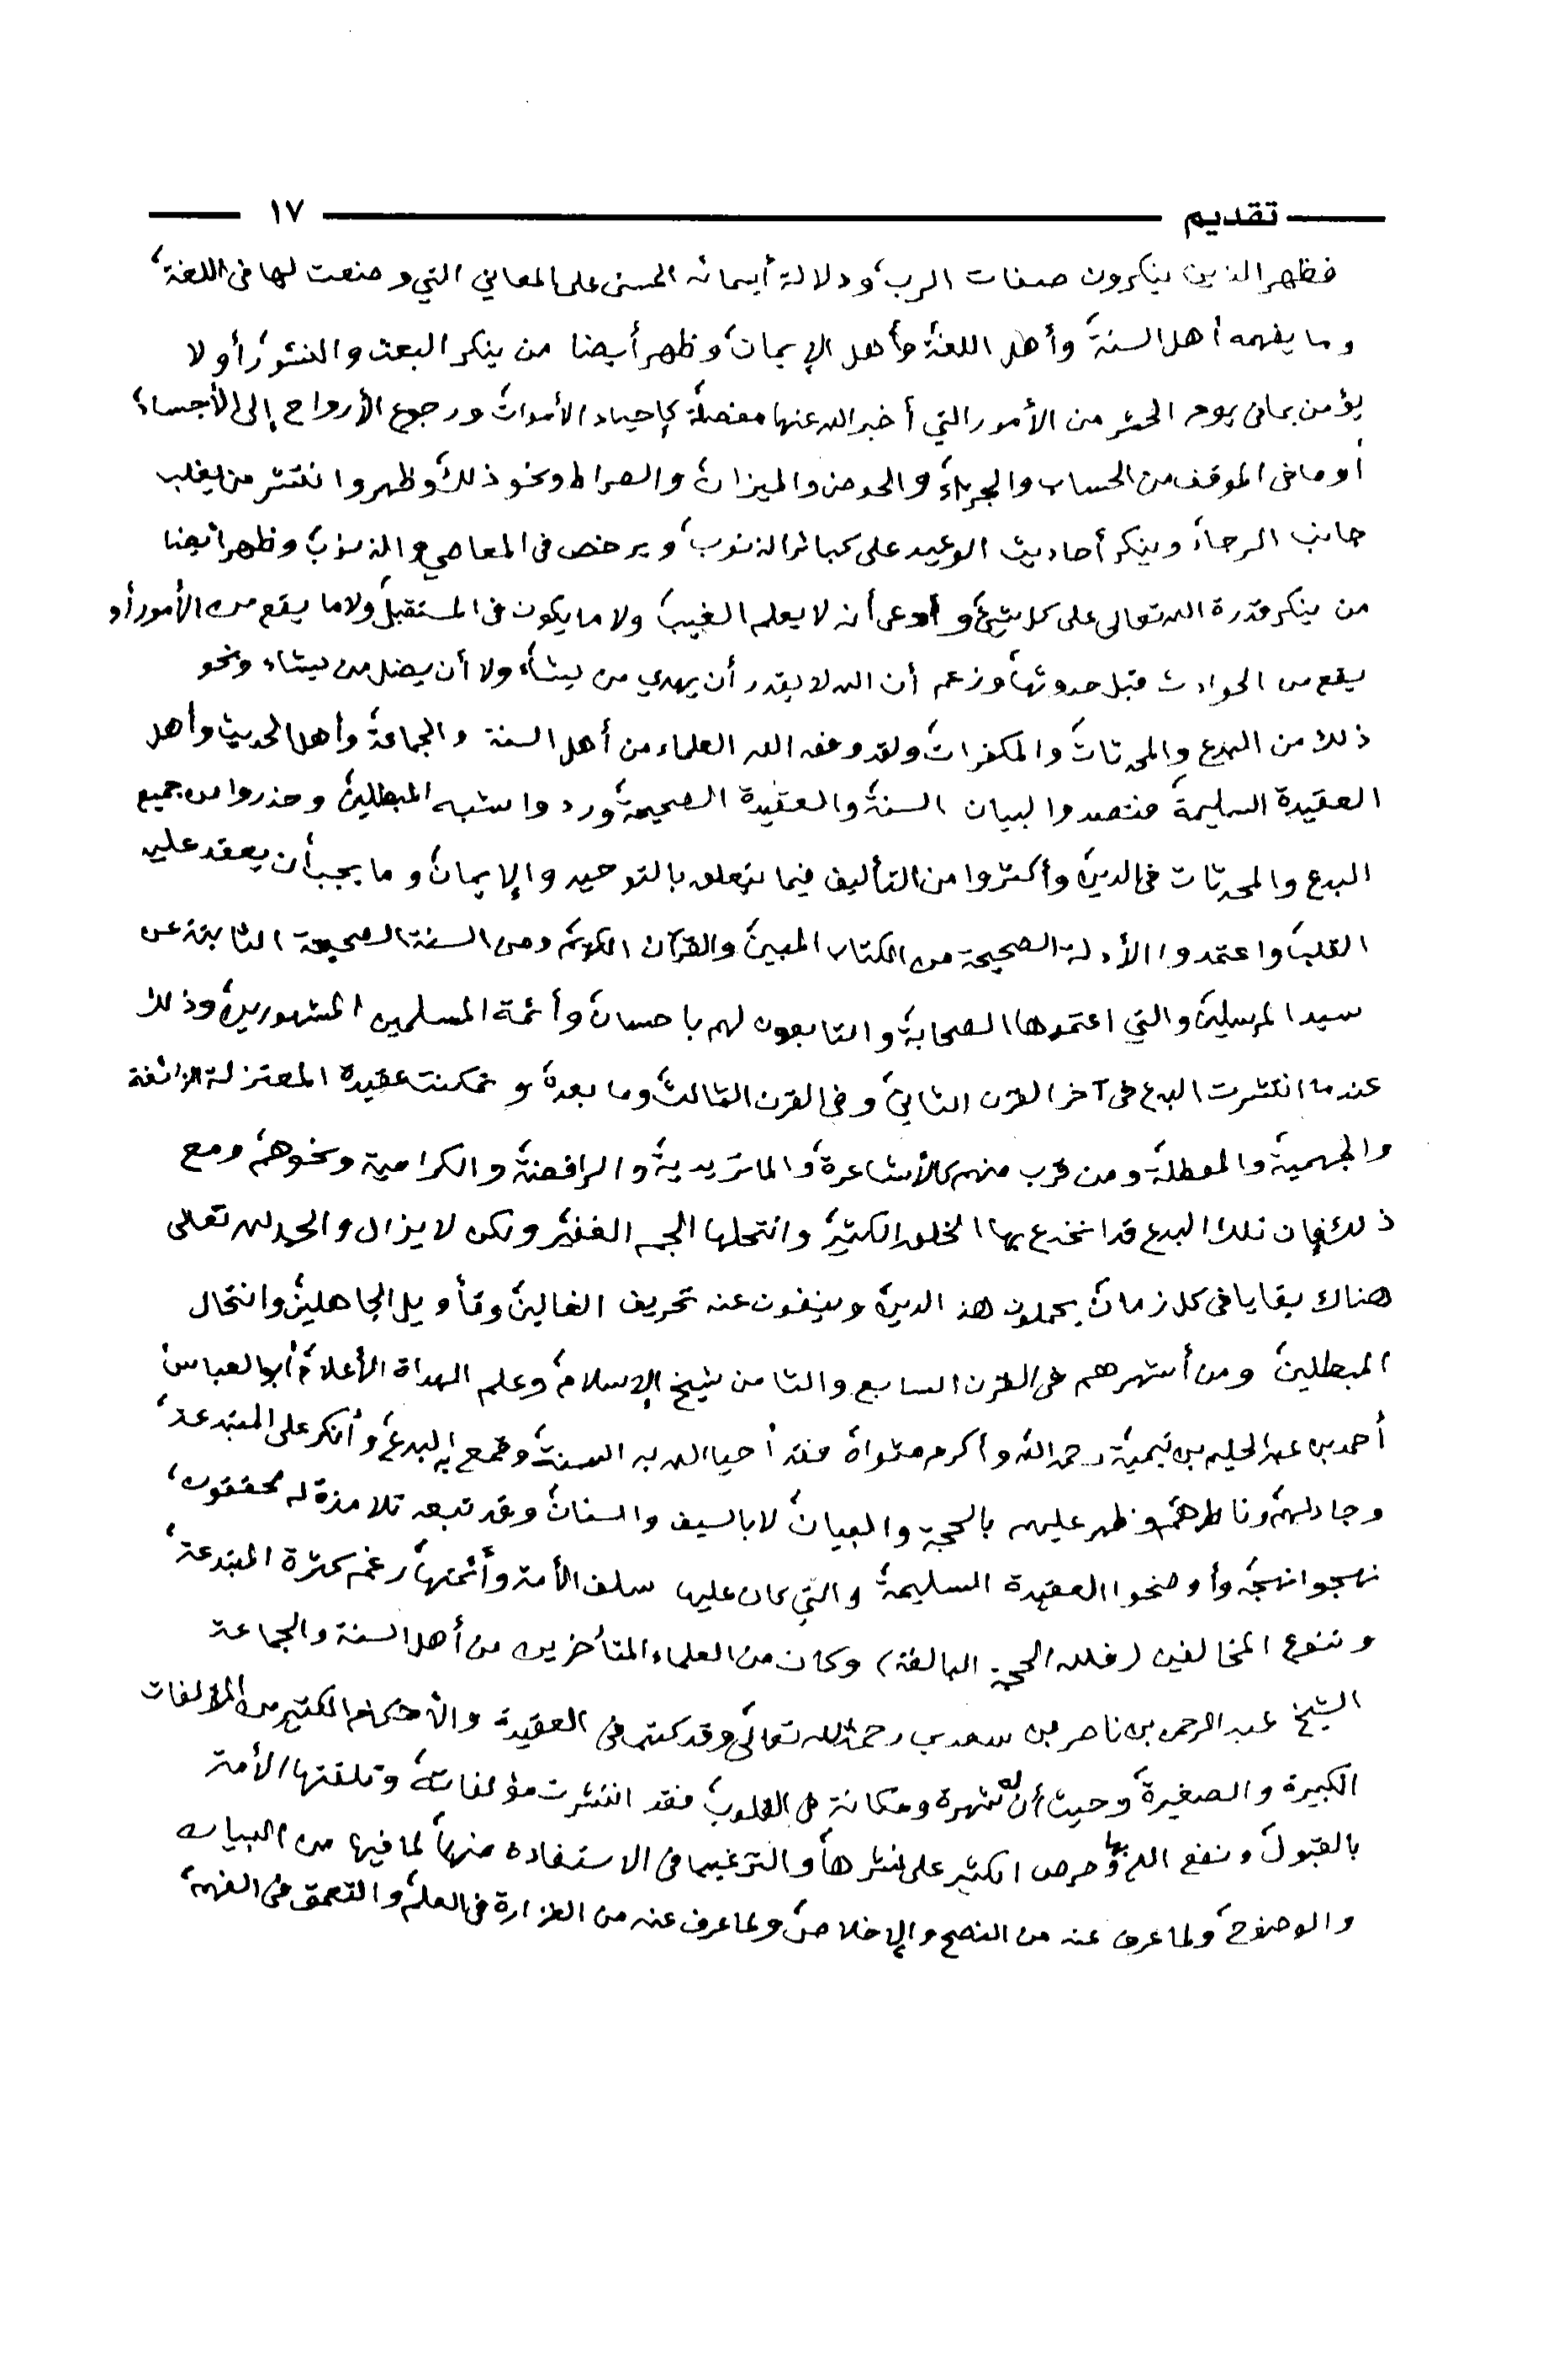 تقديم ١٧
فظهر الذين ينكرون صفات الرب، ودلالة أسمائه الحسنى على المعاني التي وضعت لها في اللغة،
وما يفهمه أهل السنة، وأهل اللغة، وأهل الإيمان، وظهر أيضا من ينكر البعث والنشور، أو لا
يؤمن بما في يوم الحشر من الأمور التي أخبر الله عنها مفصلة، كإحياء الأموات، ورجوع الأرواح إلى الأجساد،
أو ما في الموقف من الحساب والجزاء، والحوض والميزان، والصراط ونحو ذلك، وظهر وانتشر من يغلب
جانب الرجاء، وينكر أحاديث الوعيد على كبائر الذنوب، ويرخص في المعاصي والذنوب، وظهر أيضا
من ينكر قدرة الله تعالى على كل شيء، وادعى أنه لا يعلم الغيب، ولا ما يكون في المستقبل، ولا ما يقع من الأمور أو
يقع من الحوادث قبل حدوثها، وزعم أن الله لا يقدر أن يهدي من يشاء، ولا أن يضل من يشاء ونحو
ذلك من البدع والمحدثات، والمكفرات، ولقد وفق الله العلماء من أهل السنة والجماعة، وأهل الحديث، وأهل
العقيدة السليمة، فتصدوا لبيان السنة، والعقيدة الصحيحة، وردوا شبه المبطلين، وحذروا من جميع
البدع والمحدثات في الدين، وأكثروا من التأليف فيما يتعلق بالتوحيد والإيمان، وما يجب أن يعقد عليه
القلب، واعتمدوا الأدلة الصحيحة من الكتاب المبين، والقرآن الكريم، ومن السنة الصحيحة الثابتة عن
سيد المرسلين، والتي اعتمدها الصحابة، والتابعون لهم بإحسان، وأئمة المسلمين المشهورين، وذلك
عندما انتشرت البدع في آخر القرن الثاني، وفي القرن الثالث، وما بعده، وتمكنت عقيدة المعتزلة الزائغة
والجهمية، والمعطلة، ومن قرب منهم، كالأشاعرة، والماتريدية، والرافضة، والكرامية ونحوهم، ومع
ذلك فإن تلك البدع قد انخدع بها الخلق الكثير، وانتحلها الجم الغفير، ولكن لا يزال والحمد لله تعالى
هناك بقايا في كل زمان، يحملون هذ الدين، وينفون عنه تحريف الغالين، وتأويل الجاهلين، وانتحال
المبطلين، ومن أشهرهم في القرن السابع والثامن شيخ الإسلام، وعلم الهداة الأعلام، أبو العباس
أحمد بن عبد الحليم بن تيمية، رحمه الله، وأكرم مثواه، فقد أحيا الله به السنة، وقمع به البدع، وأنكر على المبتدعة،
وجادلهم، وناظرهم، وظهر عليهم بالحجة والبيان، لا بالسيف والسنان، وقد تبعه تلامذة له محققون،
نهجوا نهجه، وأوضحوا العقيدة السليمة، والتي كان عليها سلف الأمة، وأئمتها، رغم كثرة المبتدعة،
وتنوع المخالفين (فلله الحجة البالغة) وكان من العلماء المتأخرين من أهل السنة والجماعة
الشيخ عبد الرحمن بن ناصر بن سعدي رحمه الله تعالى، وقد كتب في العقيدة والأحكام الكثير من المؤلفات
الكبيرة والصغيرة، وحيث أن له شهرة ومكانة في القلوب، فقد انتشرت مؤلفاته، وتلقتها الأمة
بالقبول، ونفع الله بها، وحرص الكثير على نشرها، والترغيب في الاستفادة منها، لما فيها من البيان
والوضوح، ولما عرف عنه من النصح والإخلاص، ولما عرف عنه من الغزارة في العلم، والتعمق في الفهم،